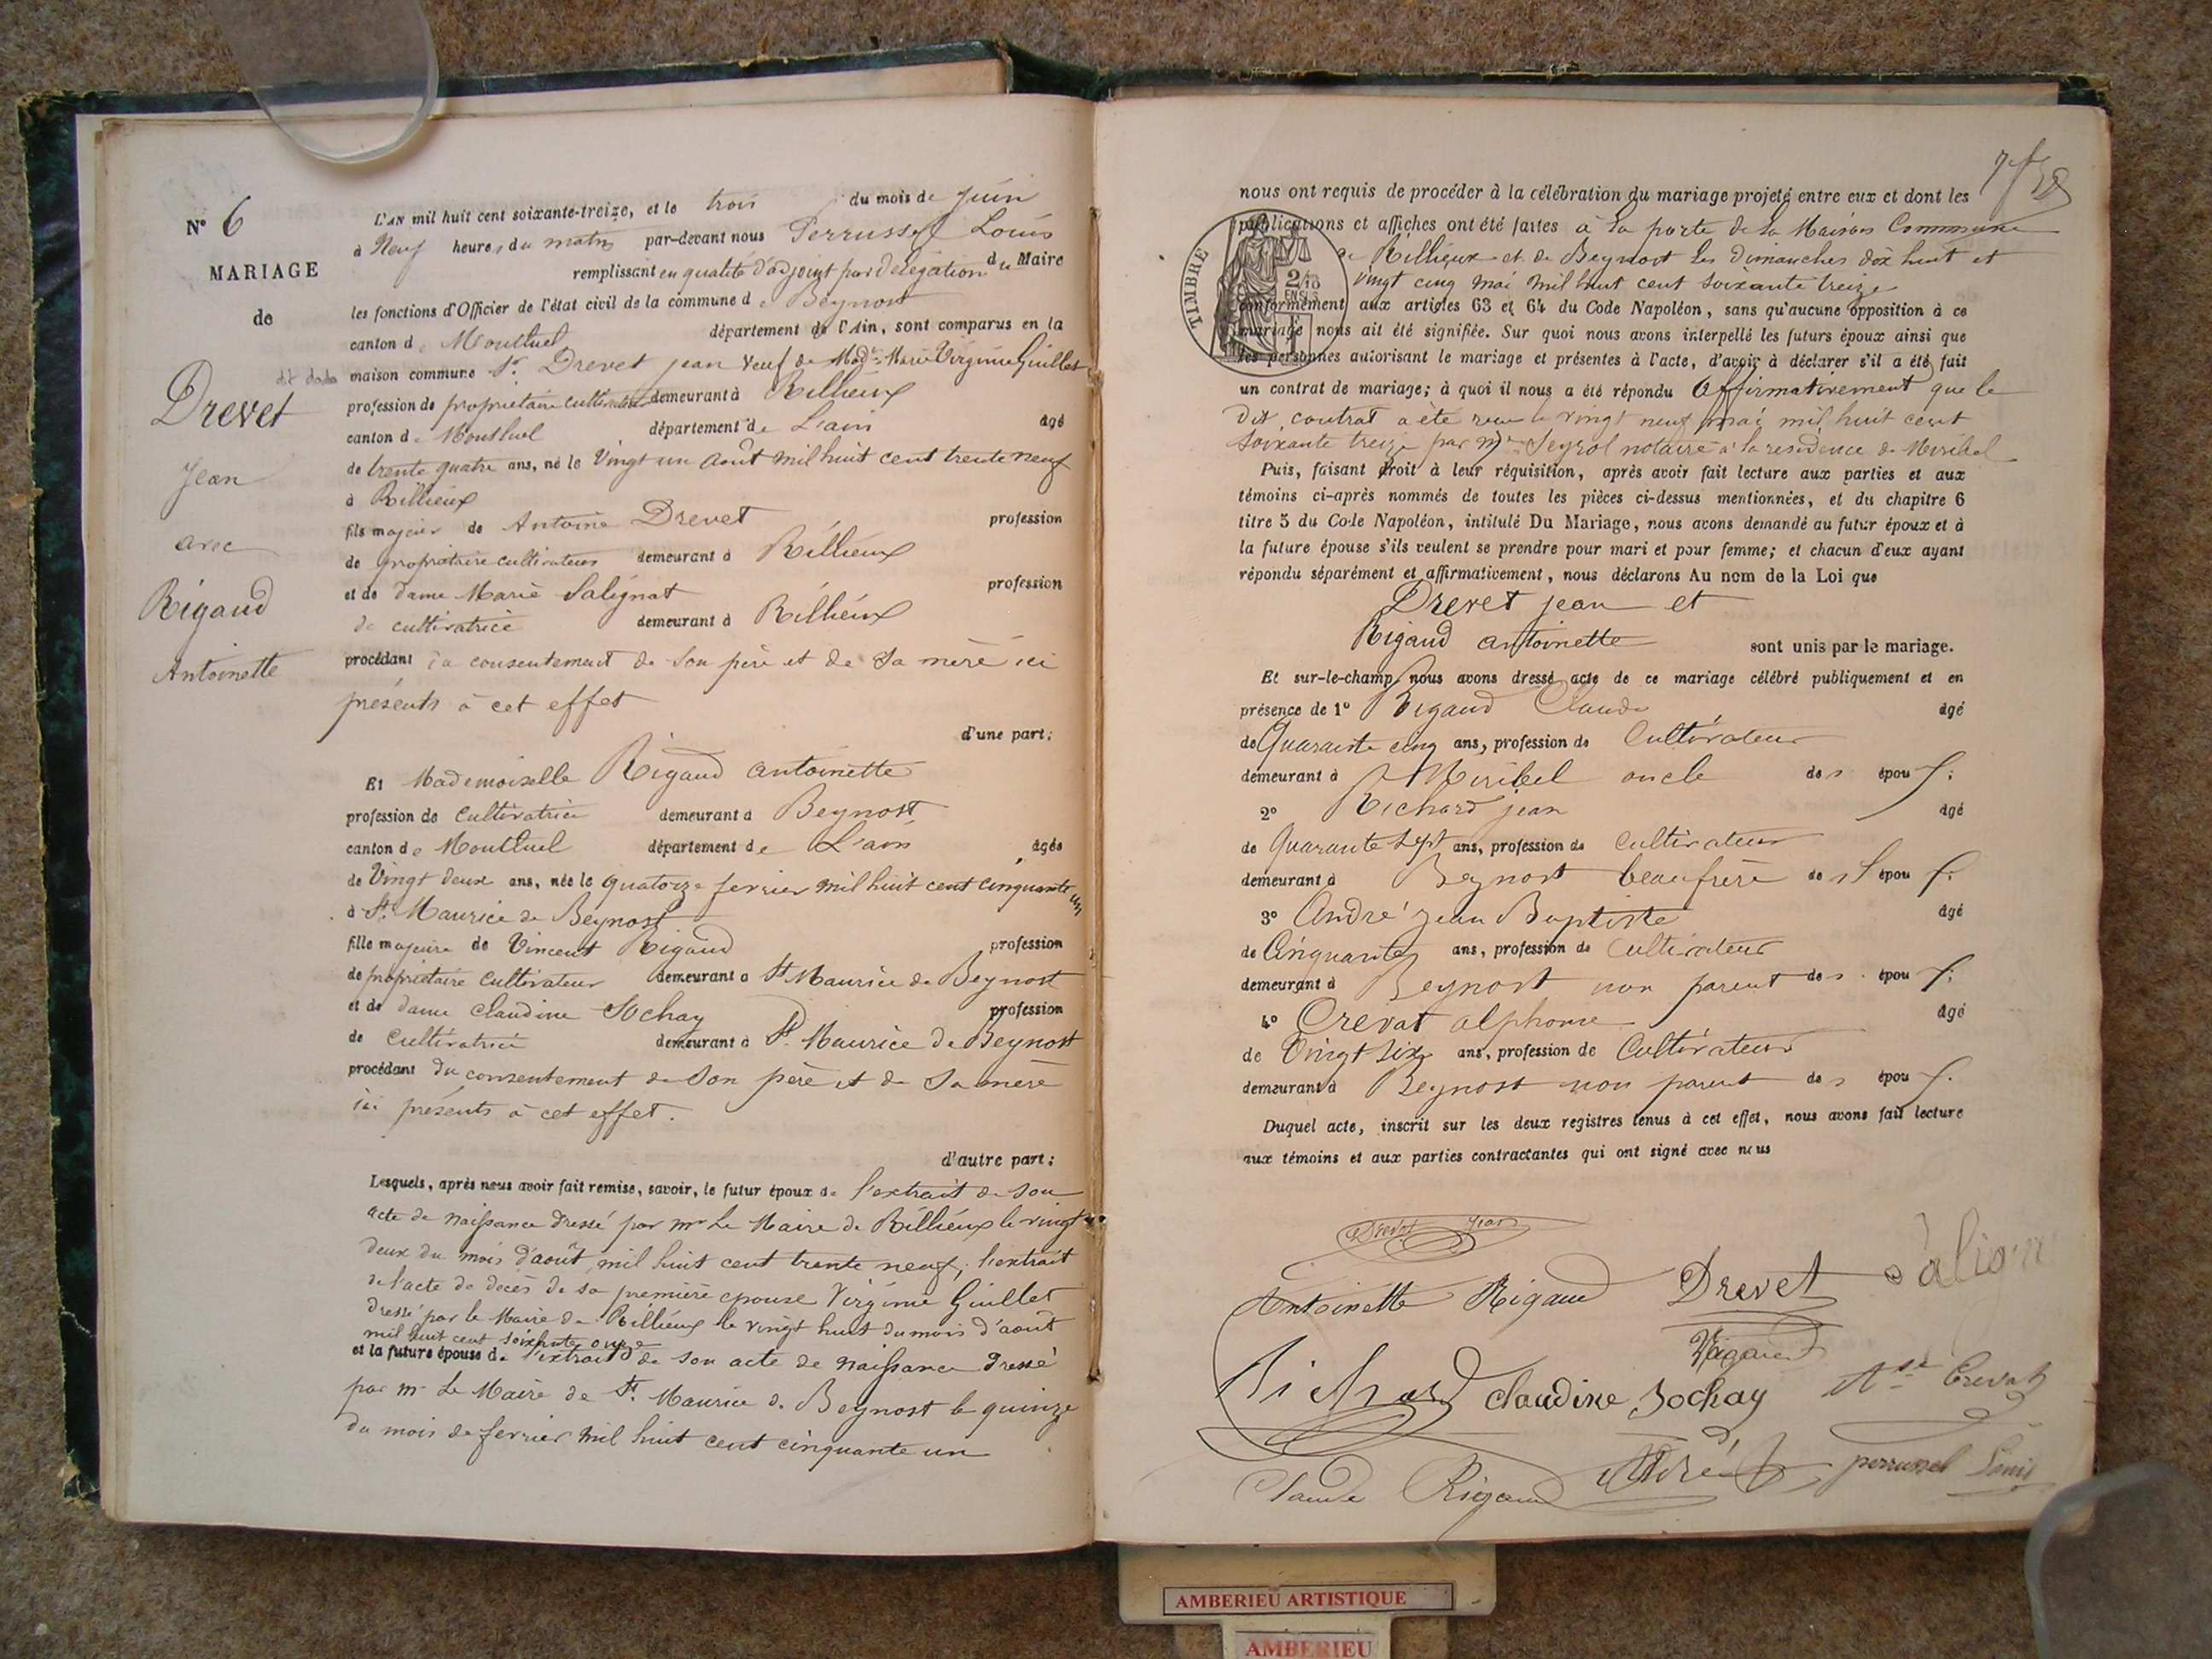 N° 6
MARIAGE
de
Drevet
Jean
avec
Rigaud
Antoinette
L'AN mil huit cent soixante-treize, et le trois du mois de juin
à Neuf heures du matin par-devant nous Perrussel Louis
remplissant en qualité d'adjoint par délégation du Maire
les fonctions d'Officier de l'état civil de la commune de Beynost
canton de Montluel département de l'Ain, sont comparus en la
maison commune Sr. Drevet jean veuf de Made Marie Virginie Guillet
profession de propriétaire cultivateur demeurant à Rillieux
canton de Montluel département de L'ain âgé
de trente quatre ans, né le Vingt un Août mil huit cent trente neuf
à Rillieux
fils majeur de Antoine Drevet profession
de propriétaire cultivateur demeurant à Rillieux
et de dame Marie Salignat profession
de cultivatrice demeurant à Rillieux
procédant du consentement de son père et de sa mère ici
présents à cet effet
d'une part;
Et Mademoiselle Rigaud antoinette
profession de Cultivatrice demeurant à Beynost
canton de Montluel département de L'ain âgée
de Vingt deux ans, née le quatorze fevrier mil huit cent cinquante un
à St. Maurice de Beynost
fille majeure de Vincent Rigaud profession
de propriétaire cultivateur demeurant à St Maurice de Beynost
et de dame Claudine Sochay profession
de Cultivatrice demeurant à St. Maurice de Beynost
procédant du consentement de son père et de sa mère
ici présents à cet effet.
d'autre part;
Lesquels, après nous avoir fait remise, savoir, le futur époux de l'extrait de son
acte de naissance dressé par mr Le Maire de Rillieux le vingt
deux du mois d'août mil huit cent trente neuf; l'extrait
de l'acte de décès de sa première epouse Virginie Guillet
dressé par le Maire de Rillieux le vingt huit du mois d'août
mil huit cent soixante onze
et la future épouse de l'extrait de son acte de naissance dressé
par mr Le Maire de St. Maurice de Beynost le quinze
du mois de fevrier mil huit cent cinquante un
nous ont requis de procéder à la célébration du mariage projeté entre eux et dont les
publications et affiches ont été faites à la porte de la Maison Commune
de Rillieux et de Beynost les dimanches dix huit et
vingt cinq mai mil huit cent soixante treize
TIMBRE
conformément aux articles 63 et 64 du Code Napoléon, sans qu'aucune opposition à ce
mariage nous ait été signifiée. Sur quoi nous avons interpellé les futurs époux ainsi que
les personnes autorisant le mariage et présentes à l'acte, d'avoir à déclarer s'il a été fait
un contrat de mariage; à quoi il nous a été répondu Affirmativement que le
dit contrat a été reçu le vingt neuf mai mil huit cent
soixante treize par Me Seyrol notaire à la residence de Miribel
Puis, faisant droit à leur réquisition, après avoir fait lecture aux parties et aux
témoins ci-après nommés de toutes les pièces ci-dessus mentionnées, et du chapitre 6
titre 5 du Code Napoléon, intitulé Du Mariage, nous avons demandé au futur époux et à
la future épouse s'ils veulent se prendre pour mari et pour femme; et chacun d'eux ayant
répondu séparément et affirmativement, nous déclarons Au nom de la Loi que
Drevet jean et
Rigaud antoinette sont unis par le mariage.
Et sur-le-champ, nous avons dressé acte de ce mariage célébré publiquement et en
présence de 1° Rigaud Claude âgé
de Quarante cinq ans, profession de Cultivateur
demeurant à Miribel oncle des épou
2° Richard jean âgé
de Quarante sept ans, profession de Cultivateur
demeurant à Beynost beaufrère de épou
3° André jean Baptiste âgé
de Cinquante ans, profession de Cultivateur
demeurant à Beynost non parent des épou
4° Crevat alphonse âgé
de Vingt six ans, profession de Cultivateur
demeurant à Beynost non parent des épou
Duquel acte, inscrit sur les deux registres tenus à cet effet, nous avons fait lecture
aux témoins et aux parties contractantes qui ont signé avec nous
Drevet Jean
Antoinette Rigaud Drevet Salign
Rigaud
Richard Claudine Sochay Crevat
Claude Rigaud André perrussel Louis
AMBERIEU ARTISTIQUE
AMBERIEU